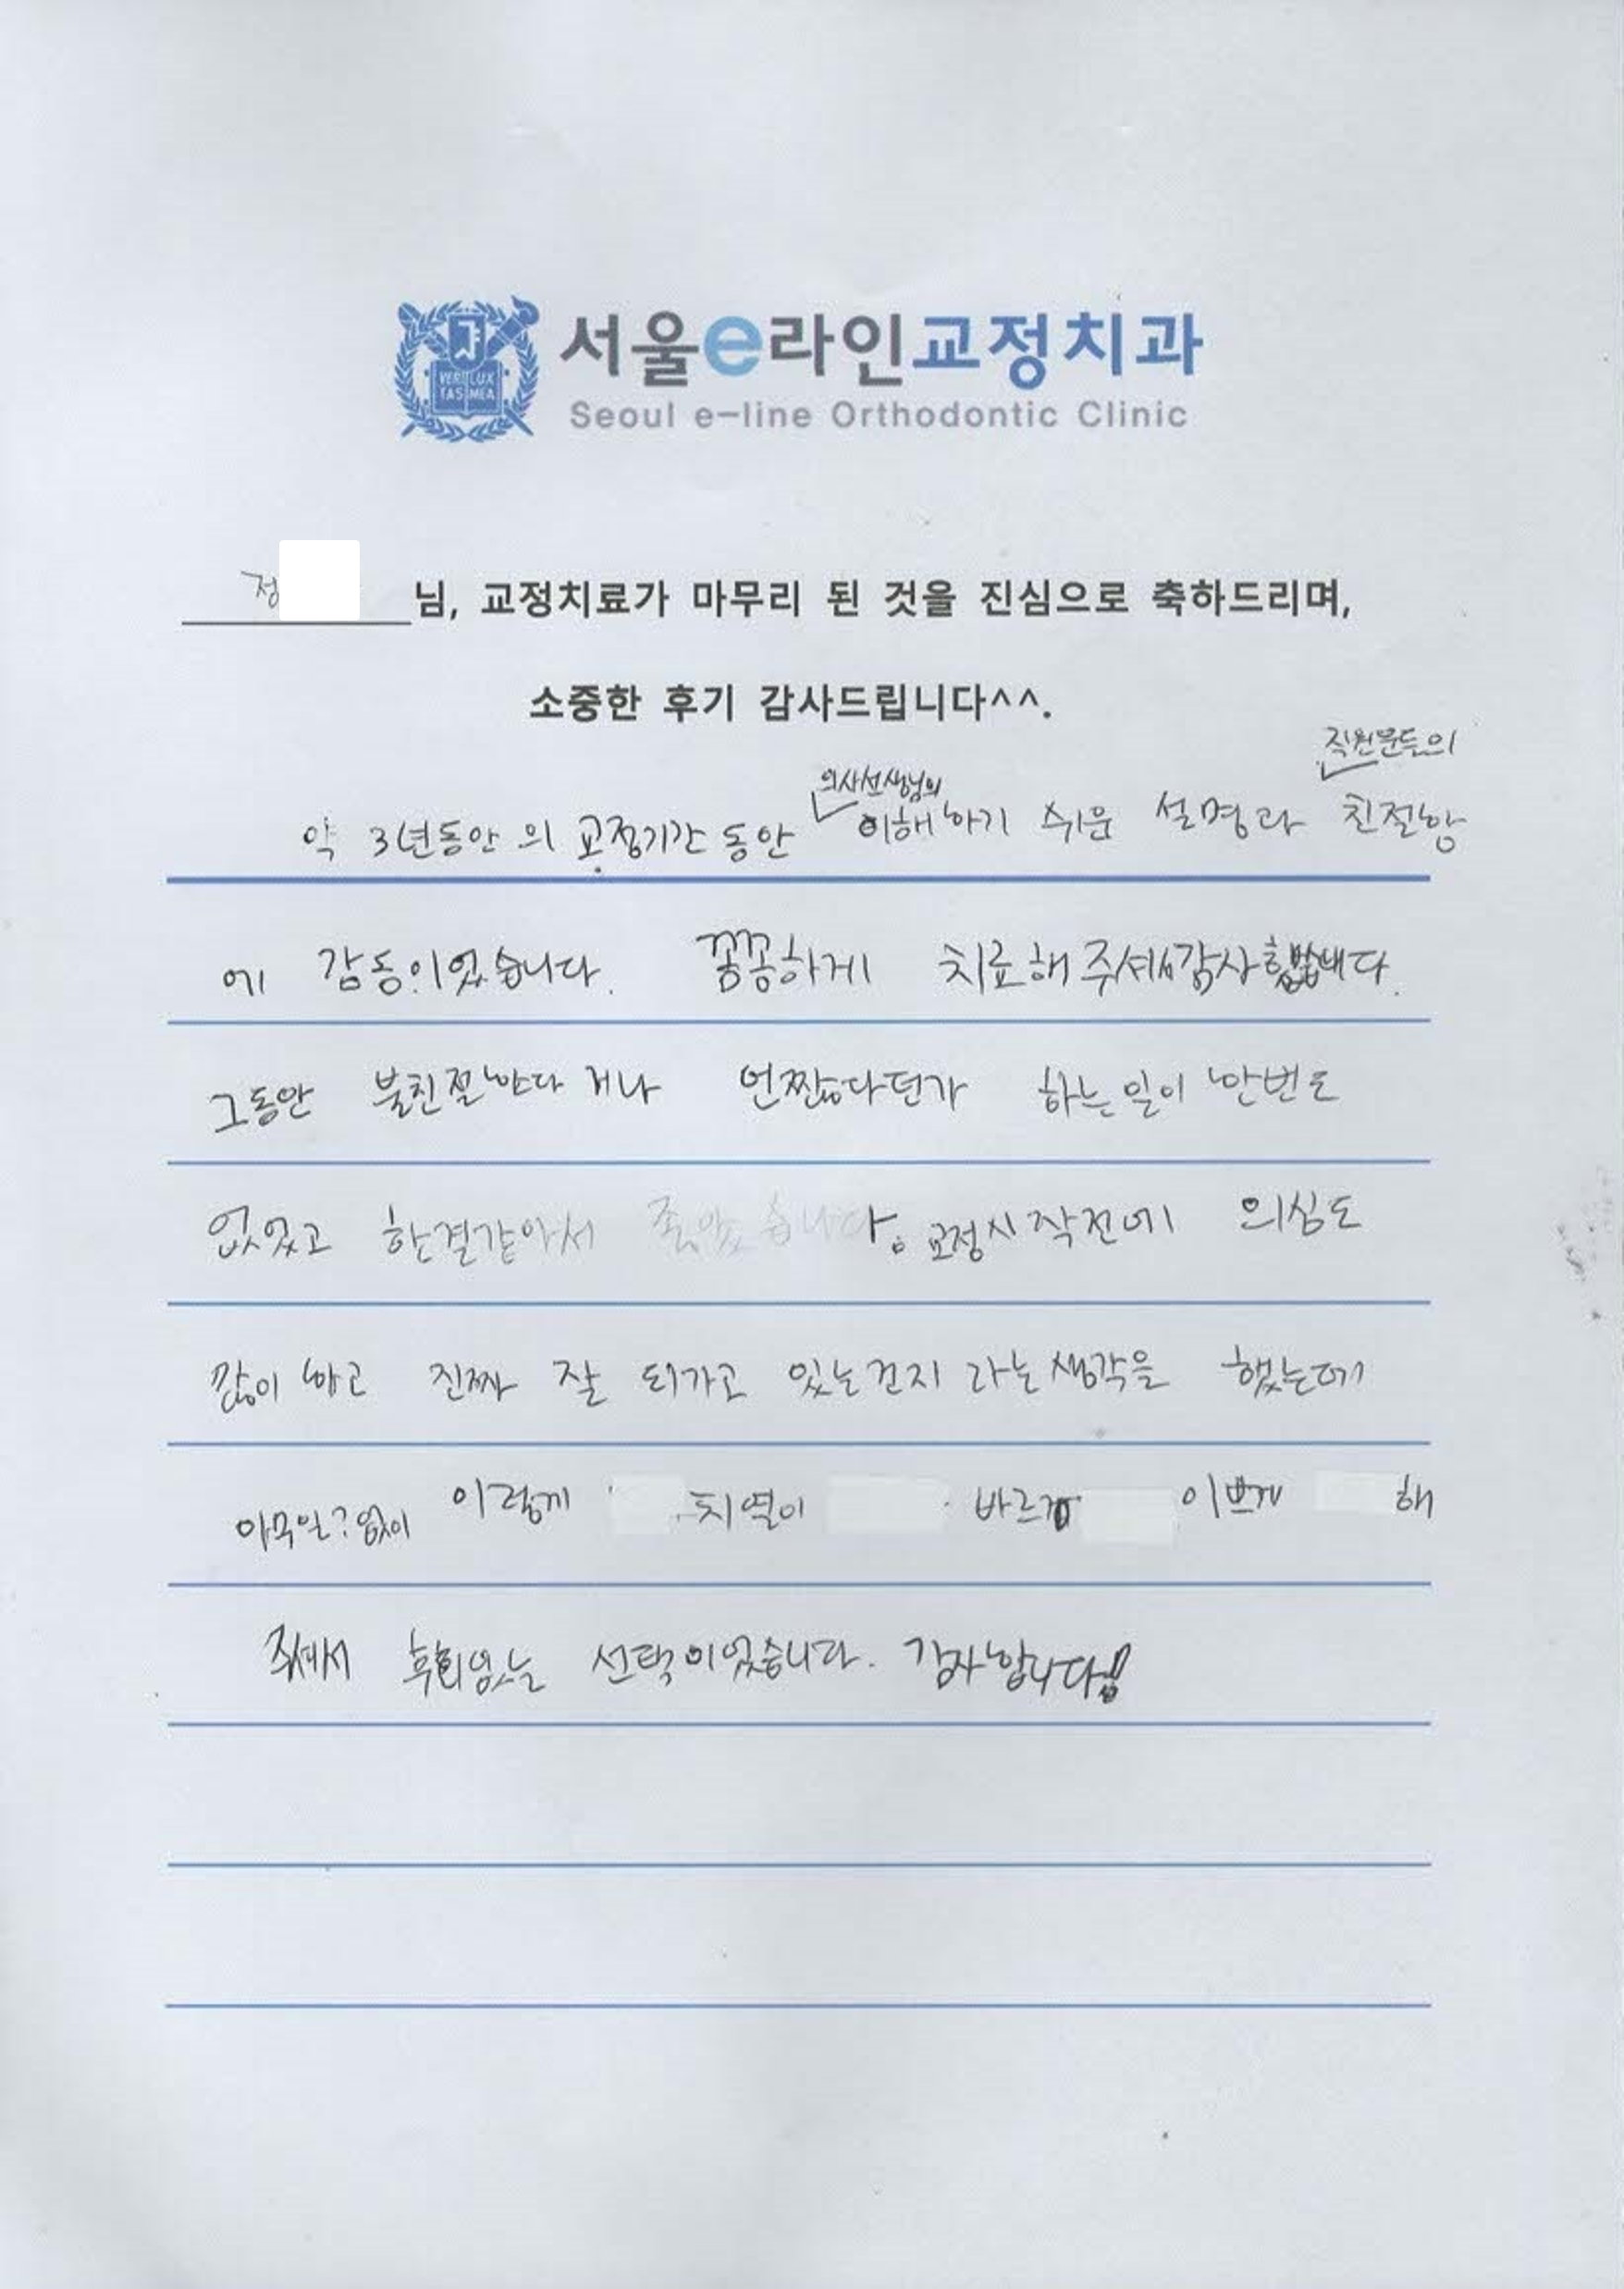 서울e라인교정치과
Seoul e-line Orthodontic Clinic
VERI LUX
TAS MEA
정 님, 교정치료가 마무리 된 것을 진심으로 축하드리며,
소중한 후기 감사드립니다^^.
의사선생님의 직원분들의
약 3년동안 의 교정기간 동안 이해하기 쉬운 설명과 친절함
에 감동이었습니다. 꼼꼼하게 치료해 주셔서 감사합니다.
그동안 불친절하다거나 언짢다던가 하는일이 한번도
없었고 한결같아서 좋았습니다. 교정시작전에 의심도
많이 하고 진짜 잘 되가고 있는건지 라는생각을 했는데
아무일 없이 이렇게 치열이 바르게 이쁘게 해
주셔서 후회없는 선택이었습니다. 감사합니다!!